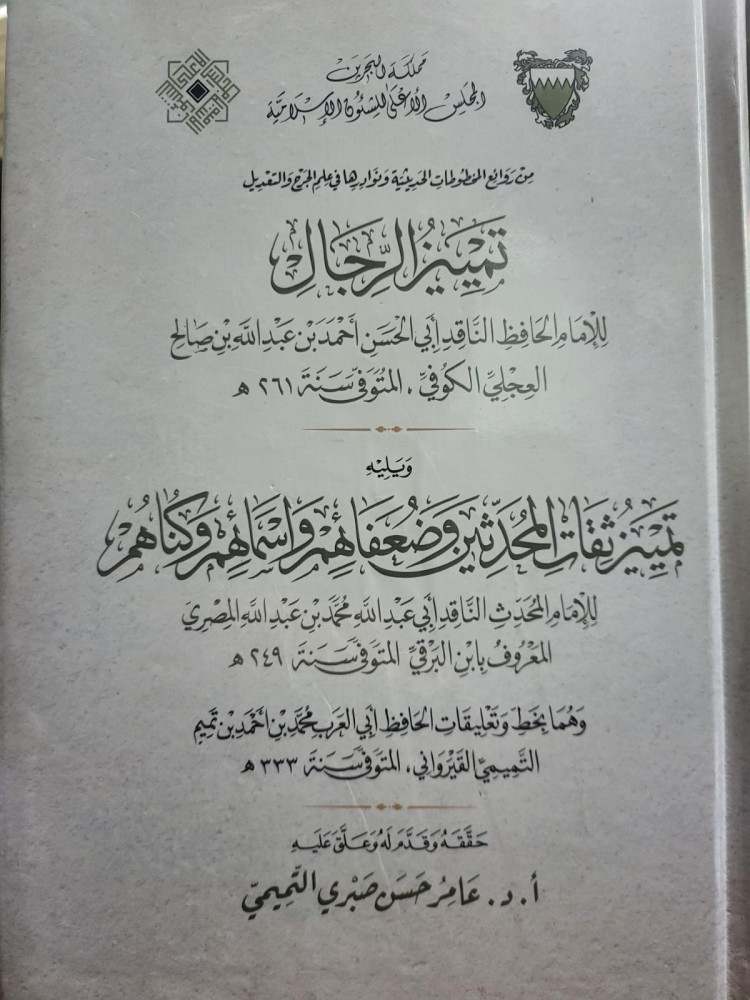 مملكة البحرين
المجلس الأعلى للشئون الإسلامية
من روائع المخطوطات الحديثية ونوادرها في علم الجرح والتعديل
تَمْيِيزُ الرِّجَالِ
للإِمَامِ الحَافِظِ النَّاقِدِ أَبِي الحَسَنِ أَحْمَدَ بْنِ عَبْدِ اللَّهِ بْنِ صَالِحِ
العِجْلِيِّ الكُوفِيِّ، المُتَوَفَّى سَنَةَ ٢٦١ هـ
وَيَلِيْهِ
تَمْيِيزُ ثِقَاتِ المُحَدِّثِينَ وَضُعَفَائِهِمْ وَأَسْمَائِهِمْ وَكُنَاهُمْ
للإِمَامِ المُحَدِّثِ النَّاقِدِ أَبِي عَبْدِ اللَّهِ مُحَمَّدِ بْنِ عَبْدِ اللَّهِ المِصْرِيِّ
المَعْرُوفُ بِابْنِ البَرْقِيِّ المُتَوَفَّى سَنَةَ ٢٤٩ هـ
وَهُمَا بِخَطِّ وَتَعْلِيقَاتِ الحَافِظِ أَبِي العَرَبِ مُحَمَّدِ بْنِ أَحْمَدَ بْنِ تَمِيمٍ
التَّمِيمِيِّ القَيْرَوَانِي، المُتَوَفَّى سَنَةَ ٣٣٣ هـ
حَقَّقَهُ وَقَدَّمَ لَهُ وَعَلَّقَ عَلَيهِ
أ. د. عَامِرُ حَسَن صَبْرِي التَّمِيمِيّ